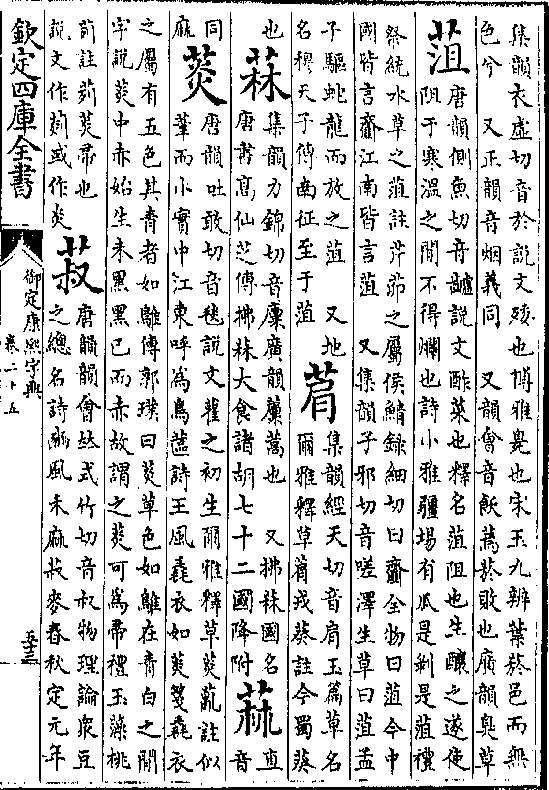 集韻衣虛切音於說文㾓也博雅臰也宋玉九辨葉菸邑而無
色兮　又正韻音烟義同　又韻會音飫蔫菸敗也廣韻臭草
菹
唐韻側魚切音䐬說文酢菜也釋名菹阻也生釀之遂使
阻于寒溫之間不得爛也詩小雅疆場有瓜是剝是菹禮
祭統水草之菹註芹茆之屬侯鯖錄細切曰齏全物曰菹今中
國皆言齏江南皆言菹　又集韻子邪切音嗟澤生草曰菹孟
子驅蛇龍而放之菹　又地
名穆天子傳南征至于菹
菺
集韻經天切音肩玉篇草名
爾雅釋草菺戎葵註今蜀葵
也
菻
集韻力錦切音廩廣韻蘪蒿也　又拂菻國名
唐書高仙芝傳拂菻大食諸胡七十二國降附
直
音
同
麻
菼
唐韻吐敢切音毯說文雚之初生爾雅釋草菼薍註似
葦而小實中江東呼為烏蓲詩王風毳衣如菼箋毳衣
之屬有五色其青者如鵻傳郭璞曰菼草色如鵻在青白之間
字說菼中赤始生末黑黑已而赤故謂之菼可為帚禮玉藻桃
茢註茢菼帚也
說文作或作炎
菽
唐韻韻會𠀤式竹切音叔物理論衆豆
之總名詩豳風禾麻菽麥春秋定元年
欽定四庫全書
御定康熙字典
卷二十五